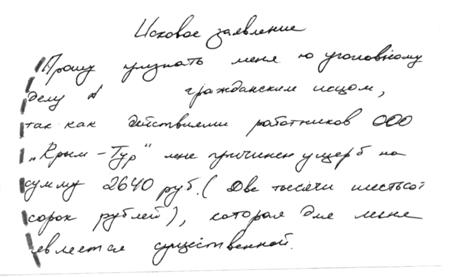 Исковое заявление
Прошу признать меня по уголовному
делу № гражданским истцом,
так как действиями работников ООО
„Крым-Тур" мне причинен ущерб на
сумму 2640 руб. (Две тысячи шестьсот
сорок рублей), которая для меня
является существенной.